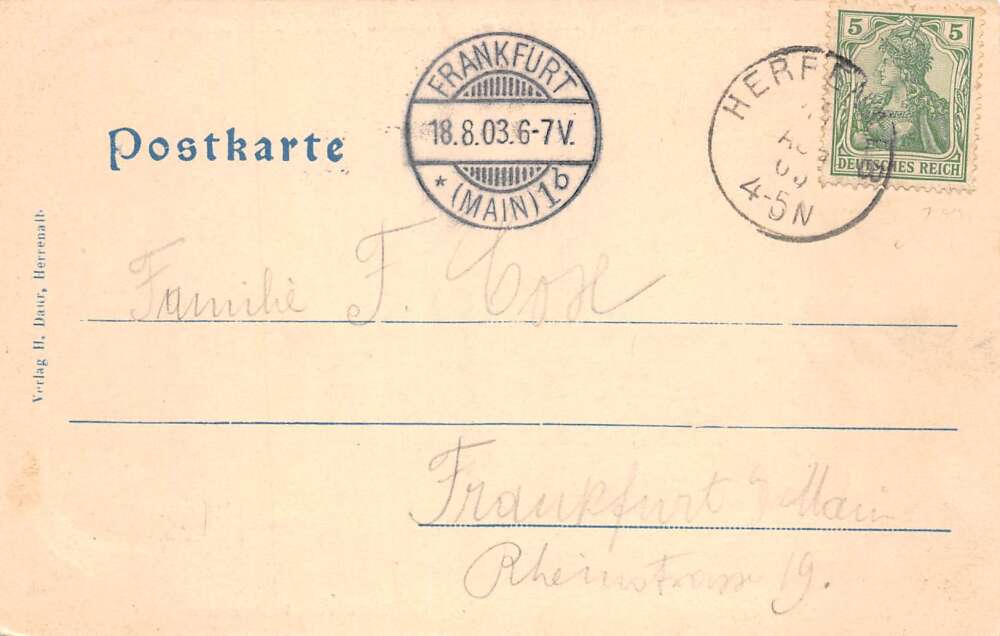 5 5
DEUTSCHES REICH
FRANKFURT
18.8.03.6-7V.
* (MAIN) 1b
4-5N
Postkarte
Familie F.
Frankfurt a/Main
Rheinstrasse 19.
Verlag H. Daur, Herrenalb.